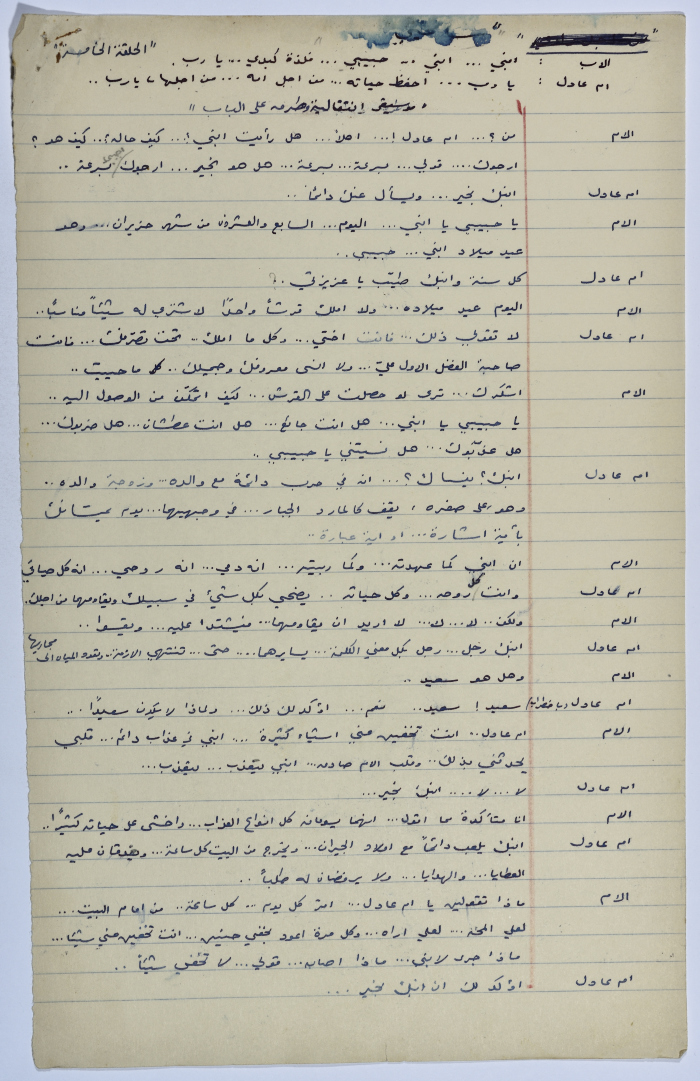 "الحلقة الخامسة"
الاب : ابني ... ابني .. حبيبي ... فلذة كبدي ... يا رب .
ام عادل : يا رب ... احفظ حياته ... من اجل امه ... من اجلها، يا رب ..
" موسيقى إنتقالية وطرق على الباب "
الام من ؟... ام عادل !... اهلاً... هل رأيت ابني ؟... كيف حاله ؟.. كيف هو ؟
ارجوك.... قولي ... بسرعة... بسرعة... هل هو بخير ... ارجوك بسرعة ..
ام عادل ابنك بخير ... ويسأل عنك دائماً ..
الام يا حبيبي يا ابني ... اليوم ... السابع والعشرون من شهر حزيران ... وهو
عيد ميلاد ابني ... حبيبي ..
ام عادل كل سنة وابنك طيّب يا عزيزتي ..
الام اليوم عيد ميلاده ... ولا املك قرشاً واحدًا لاشتري له شيئاً مناسبًا..
ام عادل لا تقولي ذلك ... فانت اختي ... وكل ما املك .. تحت تصرّفك ... فانت
صاحبة الفضل الاول عليّ ... ولا انسى معروفك وجميلك .. كل ما حييت ..
الام اشكرك ... ترى لو حصلت على القرش ... كيف اتمكّن من الوصول اليه ..
يا حبيبي يا ابني ... هل انت جائع ... هل انت عطشان ... هل ضربوك ...
هل عذّبوك ... هل نسيتني يا حبيبي ..
ام عادل ابنك ؟ ينساك ؟ ... انه في حرب دائمة مع والده .. وزوجة والده ..
وهو على صغره ، يقف كالمارد الجبار ... في وجهيهما ... يوم يمسانك
بأية اشارة ... او اية عبارة ..
الام ان ابني كما عهدته ... وكما ربيته ... انه دمي ... انه روحي ... انه كل حياتي
ام عادل وانت كل روحه ... وكل حياته .. يضحي بكل شيء في سبيلك ويقاومهما من اجلك.
الام ولكن .. لا ... لا... لا اريد ان يقاومهما ... فيشتدا عليه ... ويقسوا ..
ام عادل ابنك رجل ... رجل بكل معنى الكلمة ... يسايرهما ... حتى ... تنتهي الازمة .. وتعود المياه الى مجاريها
الام وهل هو سعيد ..
ام عادل (باضطراب) سعيد ! سعيد .. نعم ... اؤكد لك ذلك ... ولماذا لا يكون سعيدًا ...
الام ام عادل .. انت تخفين عني اشياء كثيرة ... ابني في عذاب دائم ... قلبي
يحدثني بذلك .. وقلب الام صادق ... ابني يتعذب ... يتعذب ...
ام عادل لا ... لا .... ابنك بخير ...
الام انا متأكدة مما اقول ... انهما يسومانه كل انواع العذاب ... واخشى على حياته كثيرًا ..
ام عادل ابنك يلعب دائماً مع اولاد الجيران ... ويخرج من البيت كل ساعة ... ويغدقان عليه
العطايا ... والهدايا ... ولا يرفضان له طلباً ..
الام ماذا تقولين يا ام عادل ... امرّ كل يوم ... كل ساعة .. من امام البيت ...
لعلي المحه ... لعلي اراه ... وكل مرة اعود بخفي حنين ... انت تخفين عني شيئا ...
ماذا جرى لابني ... ماذا اصابه ... قولي ... لا تخفي شيئاً ..
ام عادل اؤكد لك ان ابنك بخير ...